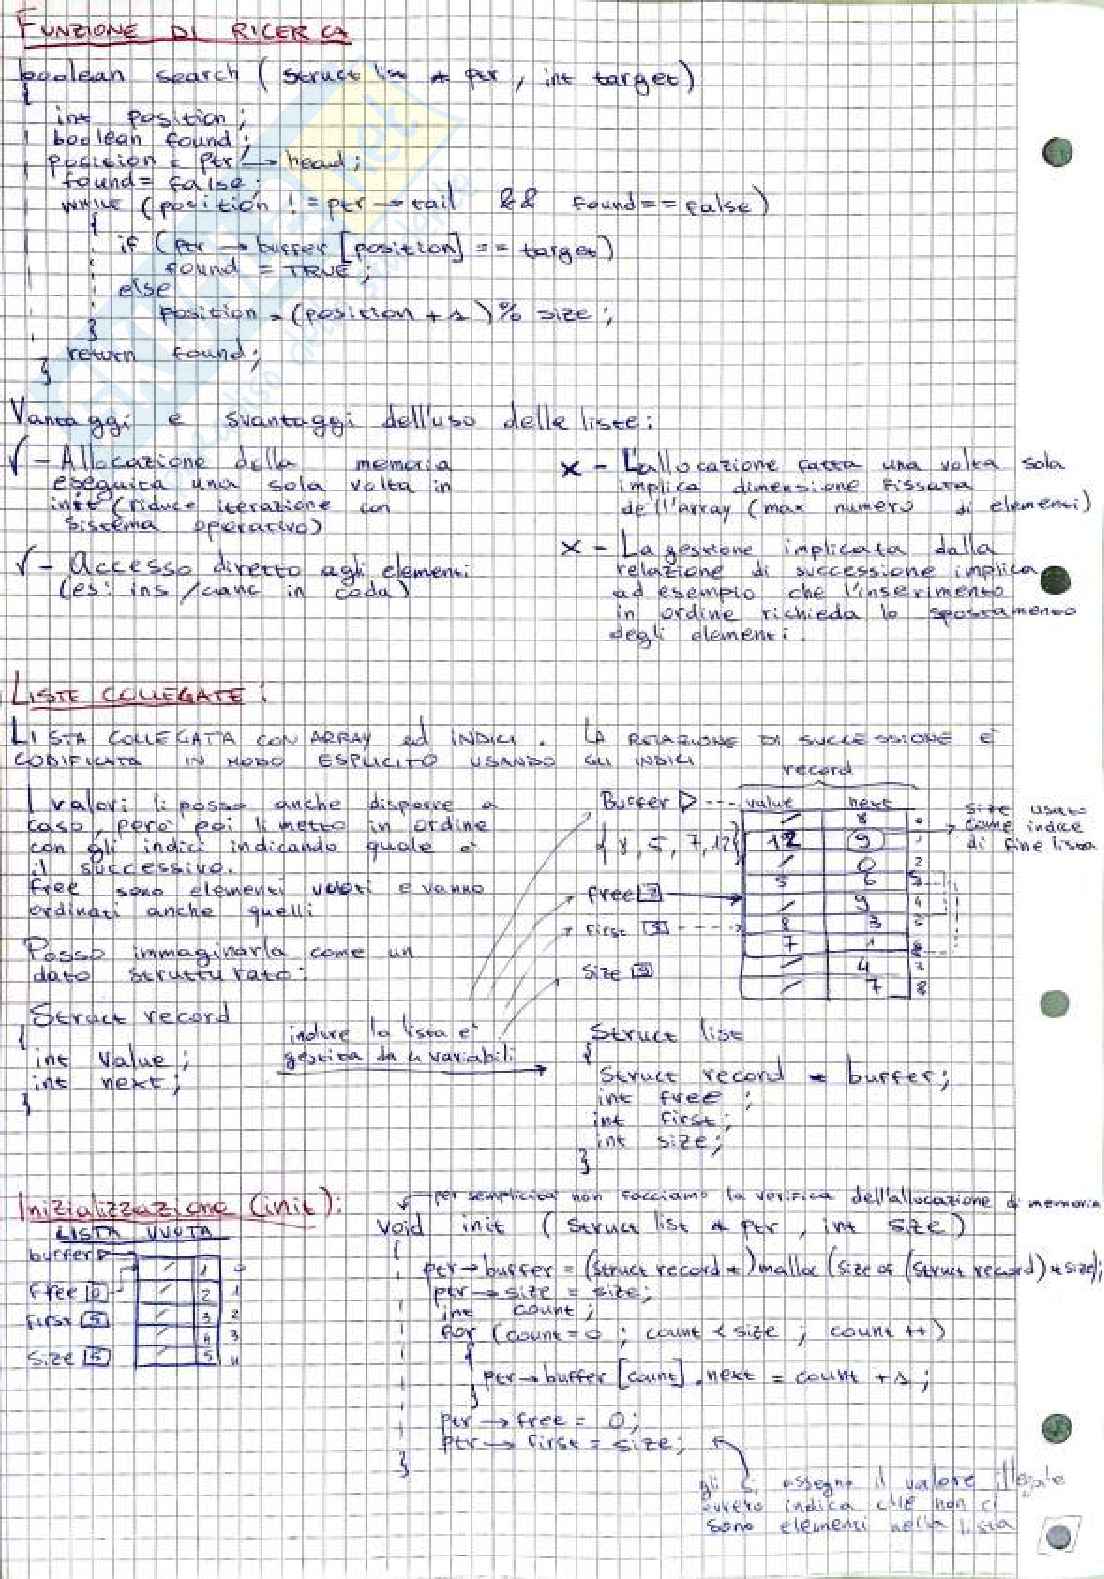 FUNZIONE DI RICERCA
boolean search ( struct list * ptr , int target)
{
int position ;
boolean found ;
position = ptr → head ;
found = false ;
WHILE (position != ptr → tail && found == false)
{
if (ptr → buffer [position] == target)
found = TRUE ;
else
position = (position + 1) % size ;
}
return found ;
}
Vantaggi e svantaggi dell'uso delle liste :
√ - Allocazione della memoria
eseguita una sola volta in
init (riduce iterazione con
sistema operativo)
√ - Accesso diretto agli elementi
(es: ins / canc in coda)
x - L'allocazione fatta una volta sola
implica dimensione fissata
dell'array (max numero di elementi)
x - La gestione implicata dalla
relazione di successione implica
ad esempio che l'inserimento
in ordine richieda lo spostamento
degli elementi .
LISTE COLLEGATE :
LISTA COLLEGATA CON ARRAY ed INDICI . LA RELAZIONE DI SUCCESSIONE E'
CODIFICATA IN MODO ESPLICITO USANDO GLI INDICI
I valori li posso anche disporre a
caso, però poi li metto in ordine
con gli indici indicando quale è
il successivo.
free sono elementi vuoti e vanno
ordinati anche quelli
Posso immaginarla come un
dato strutturato :
Struct record
{
int value ;
int next ;
}
record
Buffer ▷ value next
{ 8, 5, 7, 12}
free
first
size
/ 8 0
12 9 1
/ 0 2
5 6 3
/ 9 4
8 3
7 1
/ 4 7
/ 7 8
size usato
come indice
di fine lista
indire la lista e'
gestita da 4 variabili
Struct list
{
Struct record * buffer ;
int free ;
int first ;
int size ;
}
Inizializzazione (init) :
LISTA VUOTA
buffer ▷
free 0
first 5
size 5
/ 1 0
/ 2 1
/ 3 2
/ 4 3
/ 5 4
per semplicità non facciamo la verifica dell'allocazione di memoria
void init ( struct list * ptr , int size )
{
ptr → buffer = (struct record *) malloc (size of (struct record) * size) ;
ptr → size = size ;
int count ;
for (count = 0 ; count < size ; count ++)
{
ptr → buffer [count] . next = count + 1 ;
}
ptr → free = 0 ;
ptr → first = size ;
}
gli si assegna il valore illegale
ovvero indica che non ci
sono elementi nella lista